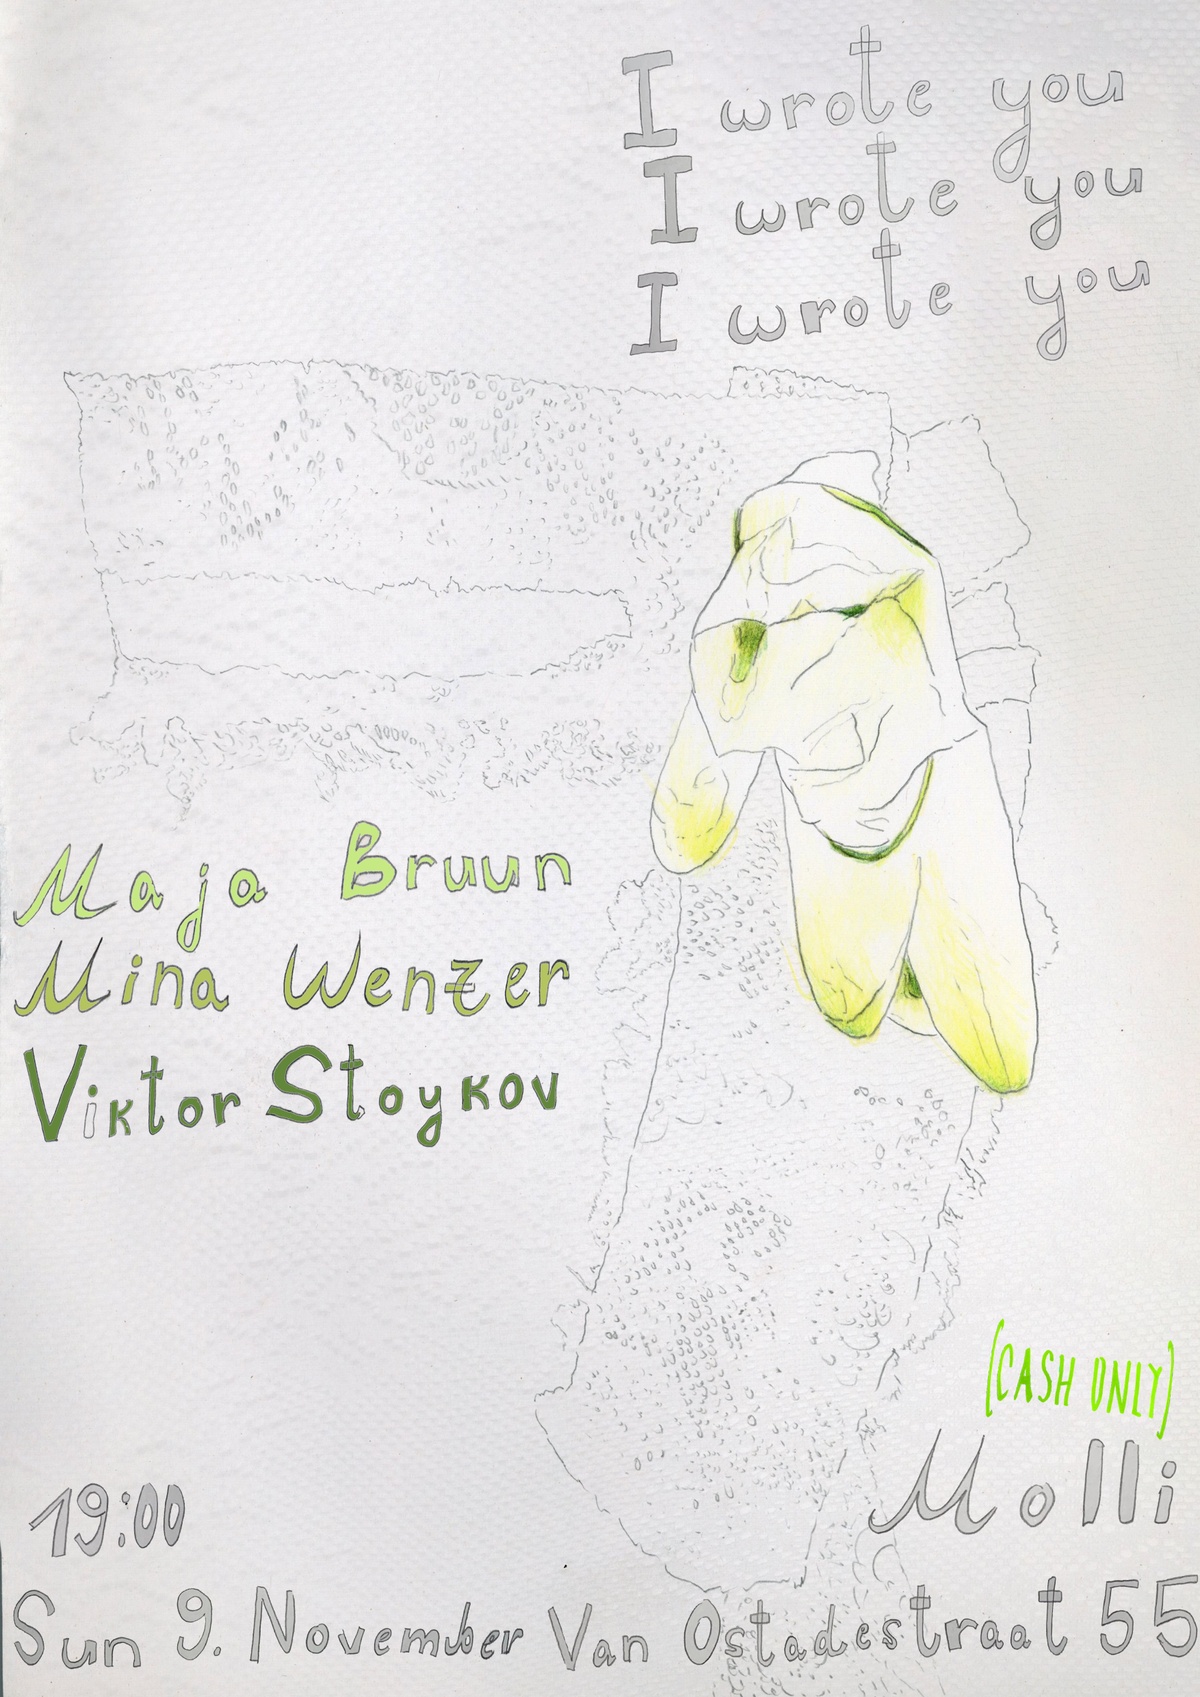 I wrote you
I wrote you
I wrote you
Maja Bruun
Mina Wenzer
Viktor Stoykov
(CASH ONLY)
Molli
19:00
Sun 9. November Van Ostadestraat 55